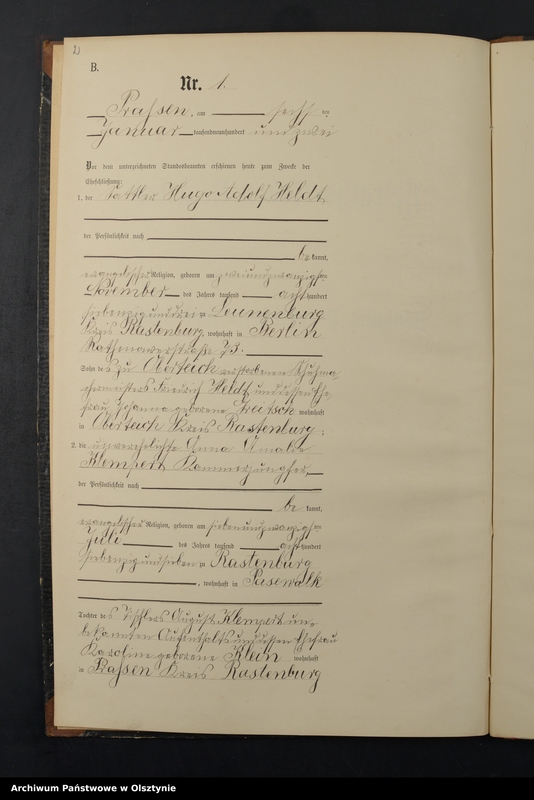 2)
B.
Nr. 1.
Prassen, am sechsten
Januar tausendneunhundert und zwei
Vor dem unterzeichneten Standesbeamten erschienen heute zum Zwecke der
Eheschließung:
1. der Sattler Hugo Adolf Heldt,
der Persönlichkeit nach
bekannt,
evangelischer Religion, geboren am zweiundzwanzigsten
November des Jahres tausend achthundert
siebenzig und drei zu Luenenburg
Kreis Rastenburg, wohnhaft in Berlin
Rathenowerstraße 73.
Sohn des zu Oberteich verstorbenen Schuhma-
chermeisters Friedrich Heldt und dessen Ehe-
frau Johanna geborene wohnhaft
in Oberteich Kreis Rastenburg;
2. die unverehelichte Anna Amalie
Klempert, Kammerjungfer,
der Persönlichkeit nach
bekannt,
evangelischer Religion, geboren am siebenundzwanzigsten
Juli des Jahres tausend achthundert
siebenzig und sieben zu Rastenburg
, wohnhaft in Pasewalk
Tochter des Tischlers August Klempert un-
bekannten Aufenthalts und dessen Ehefrau
Karoline geborene Klein wohnhaft
in Prassen Kreis Rastenburg
Archiwum Państwowe w Olsztynie